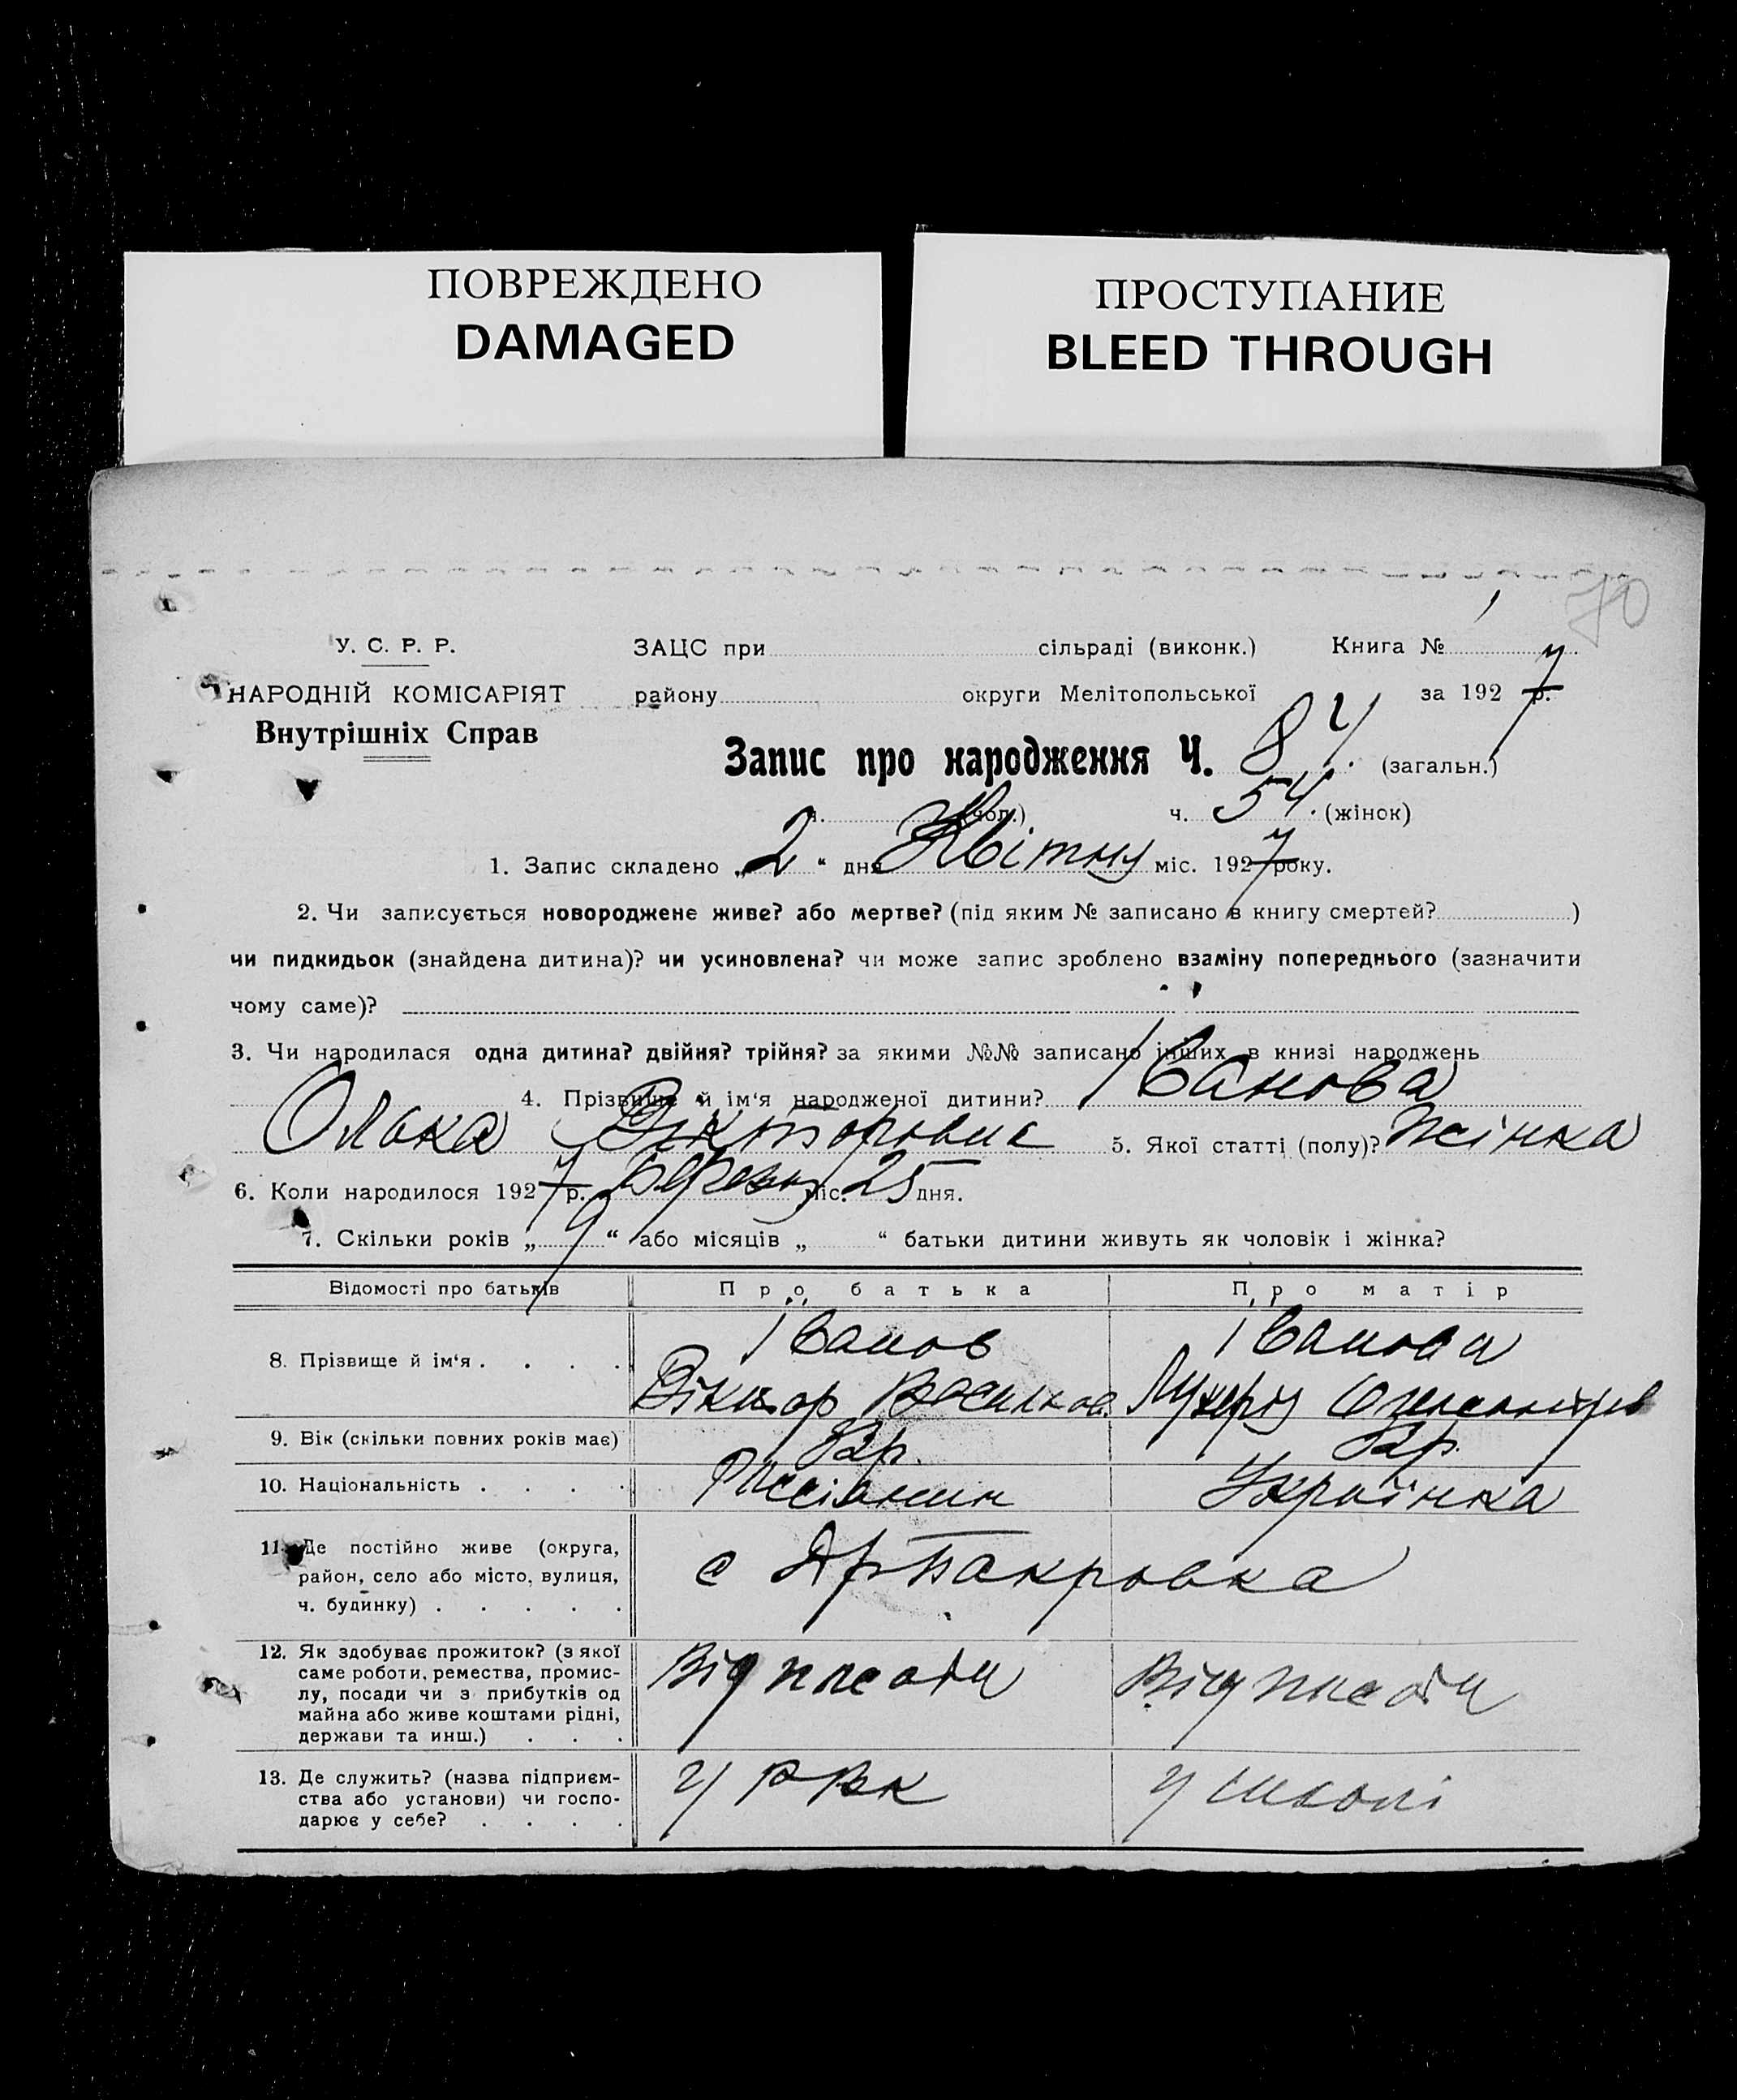 ПОВРЕЖДЕНО
DAMAGED
ПРОСТУПАНИЕ
BLEED THROUGH
70
У. С. Р. Р. ЗАЦС при сільраді (виконк.) Книга №
НАРОДНІЙ КОМІСАРІЯТ району округи Мелітопольської за 1927 р.
Внутрішніх Справ
Запис про народження Ч. (загальн.)
ч. (чол.) ч. 54. (жінок)
1. Запис складено „2“ дня Квітня міс. 1927 року.
2. Чи записується новороджене живе? або мертве? (під яким № записано в книгу смертей? )
чи пидкидьок (знайдена дитина)? чи усиновлена? чи може запис зроблено взаміну попереднього (зазначити
чому саме)?
3. Чи народилася одна дитина? двійня? трійня? за якими №№ записано інших в книзі народжень
4. Прізвище й ім'я народженої дитини? Іванова
Вікторовна 5. Якої статті (полу)? жінка
6. Коли народилося 1927 р. Березня міс. 25 дня.
7. Скільки років „ “ або місяців „ “ батьки дитини живуть як чоловік і жінка?
Відомості про батьків Про батька Про матір
8. Прізвище й ім'я . . . . Іванов Іванова
Віктор
9. Вік (скільки повних років має)
10. Національність . . . . Россіянин Українка
11. Де постійно живе (округа,
район, село або місто, вулиця,
ч. будинку) . . . . .
с
12. Як здобуває прожиток? (з якої
саме роботи, ремества, промис-
лу, посади чи з прибутків од
майна або живе коштами рідні,
держави та инш.) . . .
Від посади Від посади
13. Де служить? (назва підприєм-
ства або установи) чи госпо-
дарює у себе? . . . .
у РВК у школі